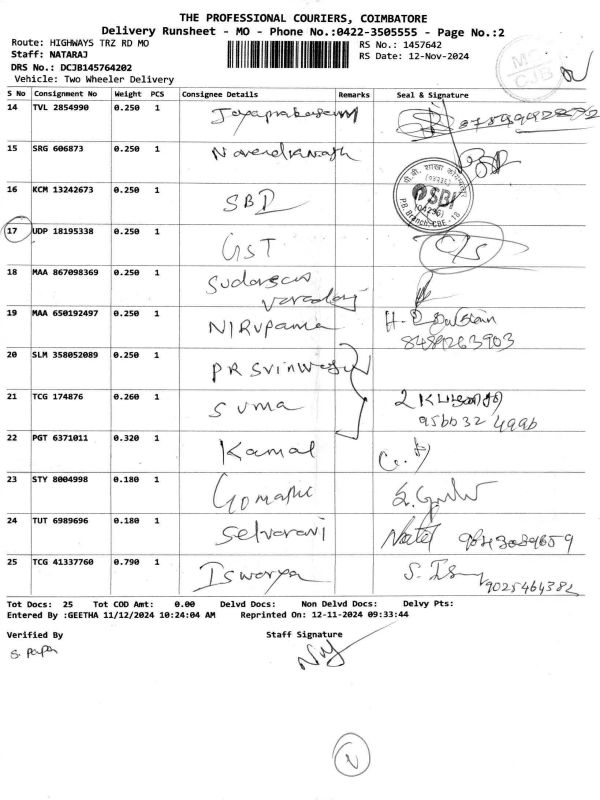 THE PROFESSIONAL COURIERS, COIMBATORE
Delivery Runsheet - MO - Phone No.:0422-3505555 - Page No.:2
Route: HIGHWAYS TRZ RD MO
RS No.: 1457642
Staff: NATARAJ
RS Date: 12-Nov-2024
DRS No.: DCJB145764202
Vehicle: Two Wheeler Delivery
CJB
S No Consignment No Weight PCS Consignee Details Remarks Seal & Signature
14 TVL 2854990 0.250 1
15 SRG 606873 0.250 1
16 KCM 13242673 0.250 1 SBI
SBI
(04236)
P.B. Branch, CBE - 18
17 UDP 18195338 0.250 1 GST
18 MAA 867098369 0.250 1
19 MAA 650192497 0.250 1 NIRUPama
8489263903
20 SLM 358052089 0.250 1 PR
21 TCG 174876 0.260 1 Suma
956632 4996
22 PGT 6371011 0.320 1 Kamal
23 STY 8004998 0.180 1
24 TUT 6989696 0.180 1 Selvarani
25 TCG 41337760 0.790 1 Iswarya
9025464382
Tot Docs: 25 Tot COD Amt: 0.00 Delvd Docs: Non Delvd Docs: Delvy Pts:
Entered By :GEETHA 11/12/2024 10:24:04 AM Reprinted On: 12-11-2024 09:33:44
Verified By Staff Signature
S. Papa